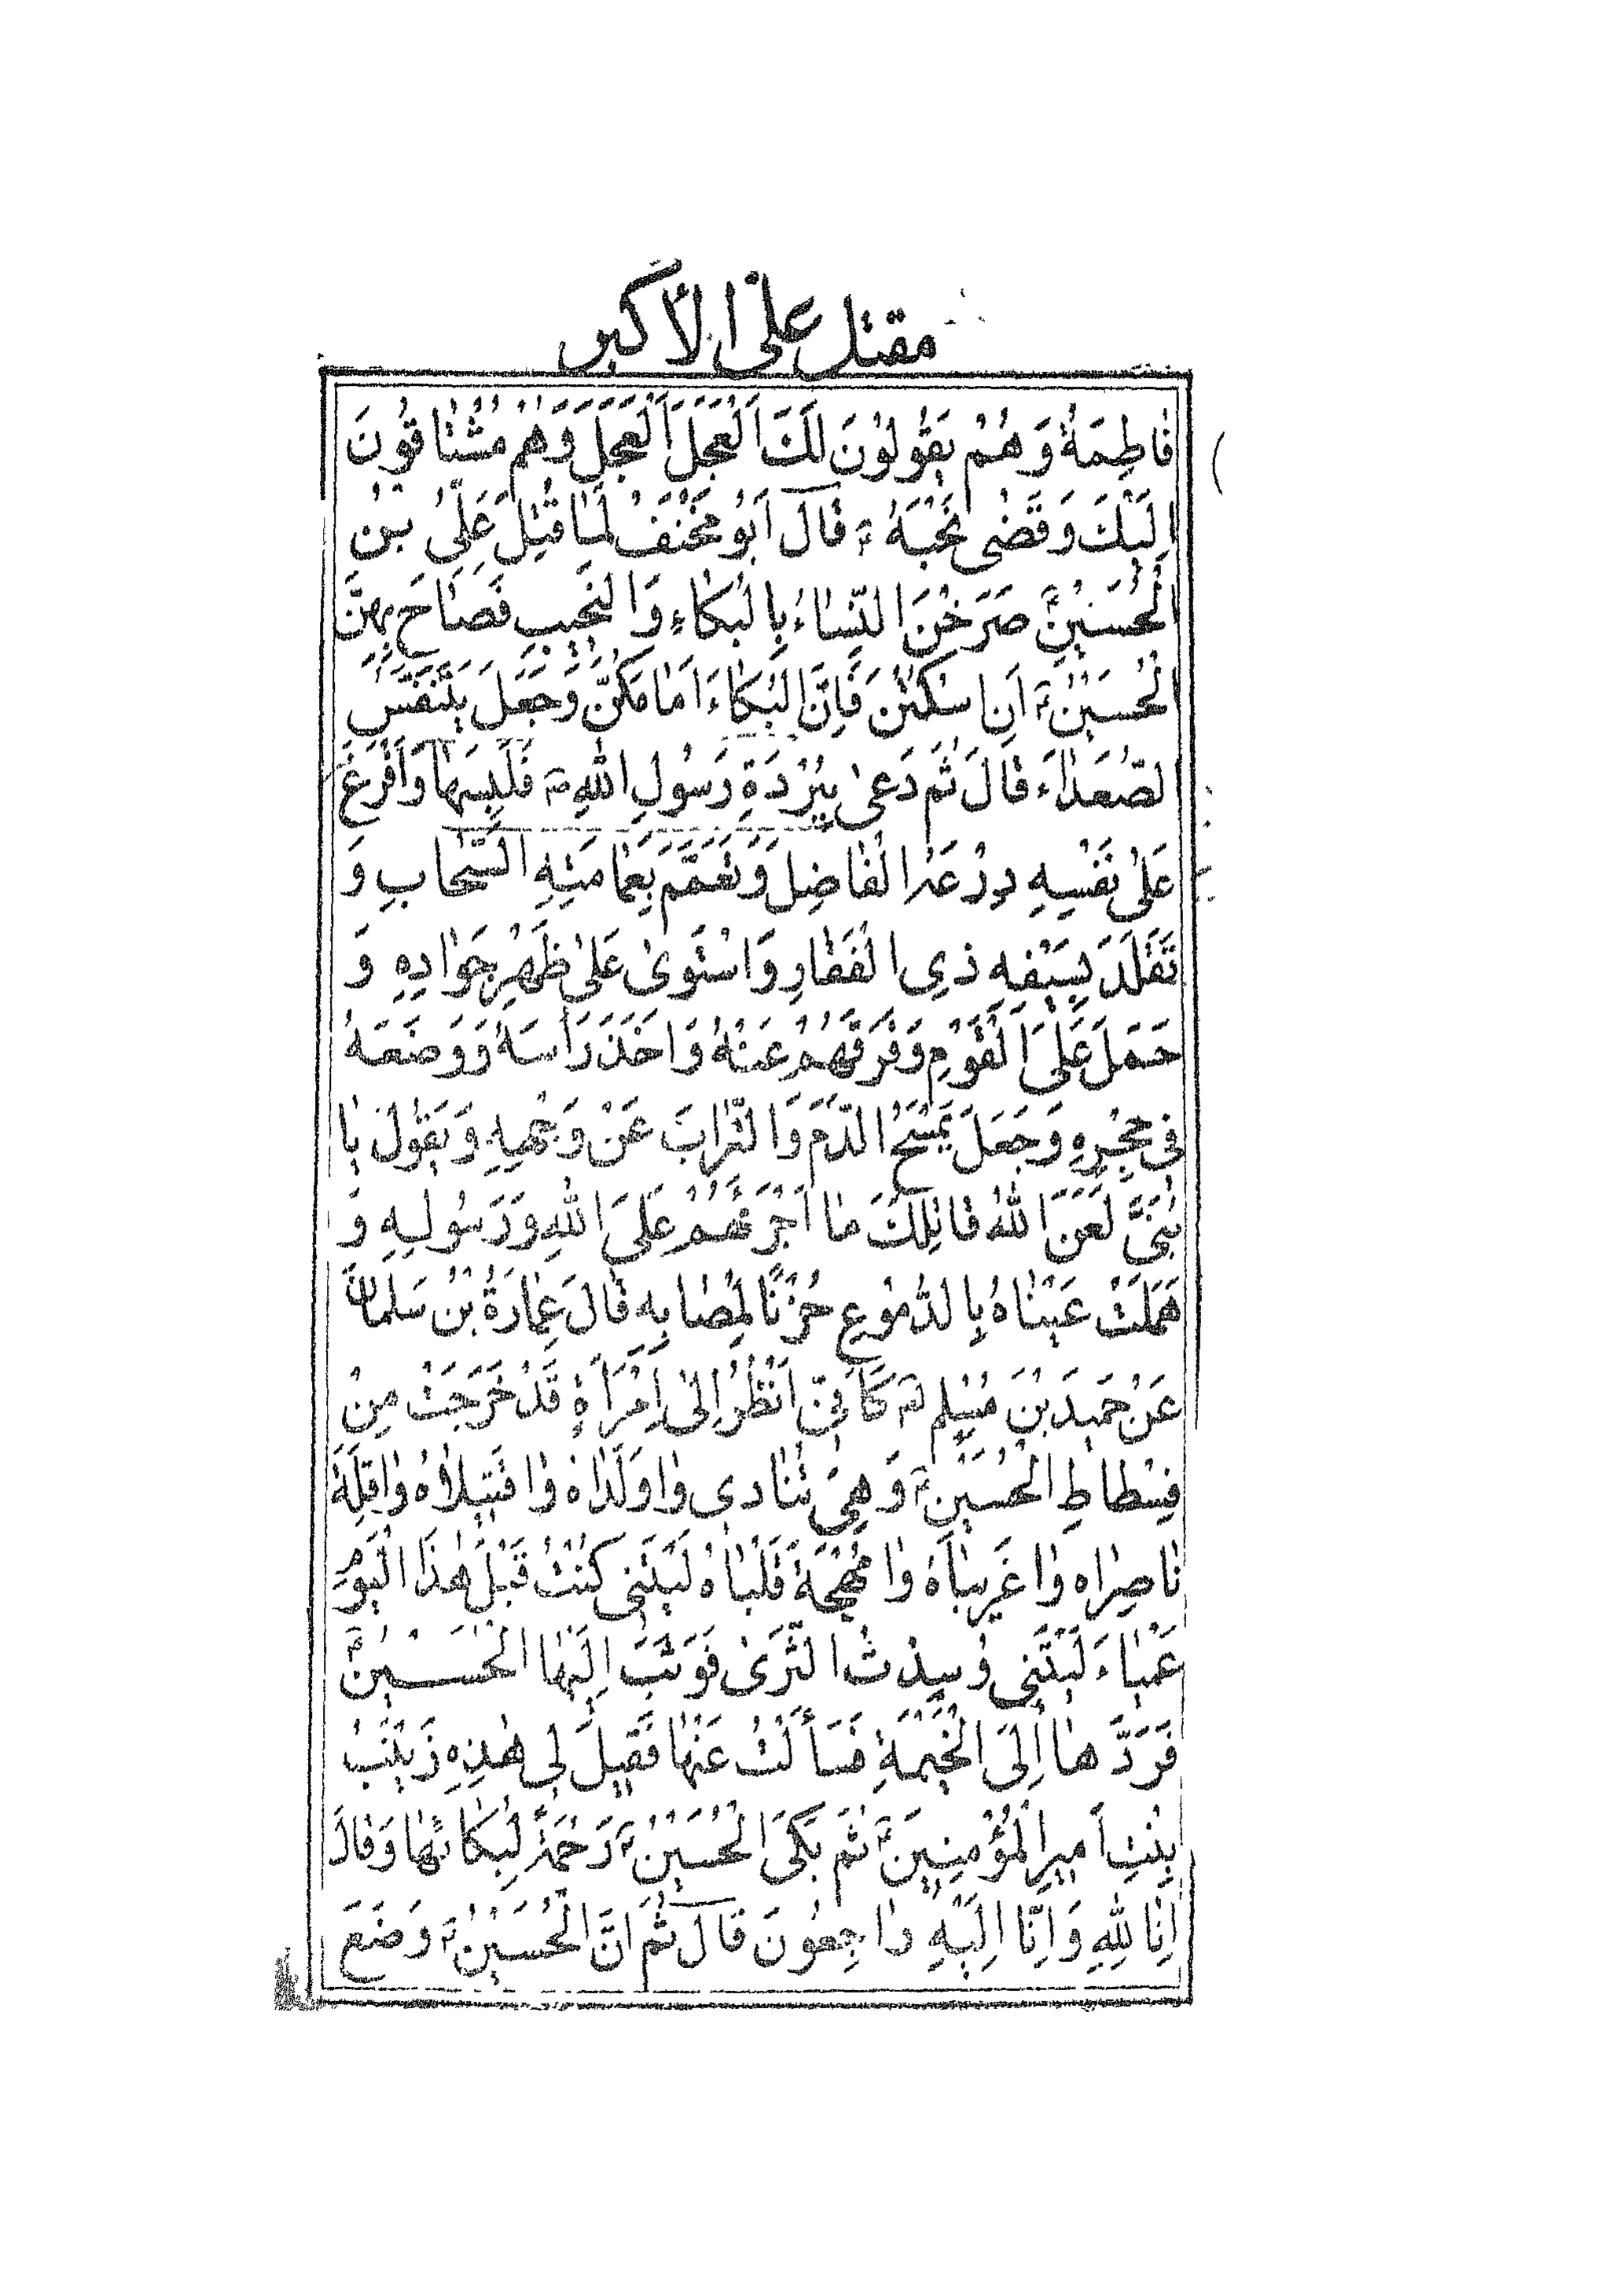 مقتل علی الاکبر
فَاطِمَةُ وَهُمْ يَقُولُونَ لَكَ اَلْعَجَلَ اَلْعَجَلَ وَهُمْ مُشْتَاقُونَ
اِلَيْكَ وَقَضٰى نَحْبَهُ ۴ قَالَ اَبُو مِخْنَفْ لَمَّا قُتِلَ عَلِىُّ بْنِ
الْحُسَيْنِؑ صَرَخْنَ النِّسَاءُ بِالْبُكَاءِ وَالنَّحِيبِ فَصَاحَ بِهِنَّ
الْحُسَيْنُؑ اَنِ اسْكُتْنَ فَاِنَّ الْبُكَاءَ اَمَامَكُنَّ وَجَعَلَ يَتَنَفَّسُ
الصُّعَدَاءَ قَالَ ثُمَّ دَعىٰ بِبُرْدَةِ رَسُولِ اللهِؐ فَلَبِسَهَا وَاَفْرَغَ
عَلىٰ نَفْسِهِ دِرْعَهُ الْفَاضِلَ وَتَعَمَّمَ بِعِمَامَتِهِ السَّحَابِ وَ
تَقَلَّدَ بِسَيْفِهِ ذِى الْفَقَارِ وَاسْتَوىٰ عَلىٰ ظَهْرِ جَوَادِهِ وَ
حَمَلَ عَلَى الْقَوْمِ وَفَرَّقَهُمْ عَنْهُ وَاَخَذَ رَأْسَهُ وَوَضَعَهُ
فى حِجْرِهِ وَجَعَلَ يَمْسَحُ الدَّمَ وَالتُّرَابَ عَنْ وَجْهِهِ وَيَقُولُ يَا
بُنَىَّ لَعَنَ اللهُ قَاتِلَكَ مَا اَجْرَئَهُمْ عَلَى اللهِ وَرَسُولِهِ وَ
هَمَلَتْ عَيْنَاهُ بِالدُّمُوعِ حُزْنًا لِمُصَابِهِ قَالَ عِمَارَةُ بْنُ سَلمَانَ
عَنْ حَمِيدَ بْنَ مُسْلِم قَالَ كَاَنِّى اَنْظُرُ اِلىٰ اِمْرَأَةٍ قَدْ خَرَجَتْ مِنْ
فِسْطَاطِ الْحُسَيْنِؑ وَهِىَ تُنَادِى وَا وَلَدَاهْ وَا قَتِيلَاهُ وَا قِلَّةَ
نَاصِرَاه وَا غَرِيبَاهْ وَا مُهْجَةَ قَلْبَاهُ لَيْتَنِى كُنْتُ قَبْلَ هٰذَا الْيَوْمِ
عَمْيَاءَ لَيْتَنِى وُسِدْتُ الثَّرَىٰ فَوَثَبَ اِلَيْهَا الْحُسَيْنُؑ
فَرَدَّهَا اِلَى الْخَيْمَةِ فَسَأَلْتُ عَنْهَا فَقِيلَ لِى هٰذِهِ زَيْنَبُ
بِنْتِ اَمِيرِ الْمُؤْمِنِينَؑ ثُمَّ بَكَى الْحُسَيْنُؑ رَحْمَةً لِبُكَائِهَا وَقَالَ
اِنَّا لِلّٰهِ وَاِنَّا اِلَيْهِ رَاجِعُونَ قَالَ ثُمَّ اِنَّ الْحُسَيْنُؑ وَضَعَ